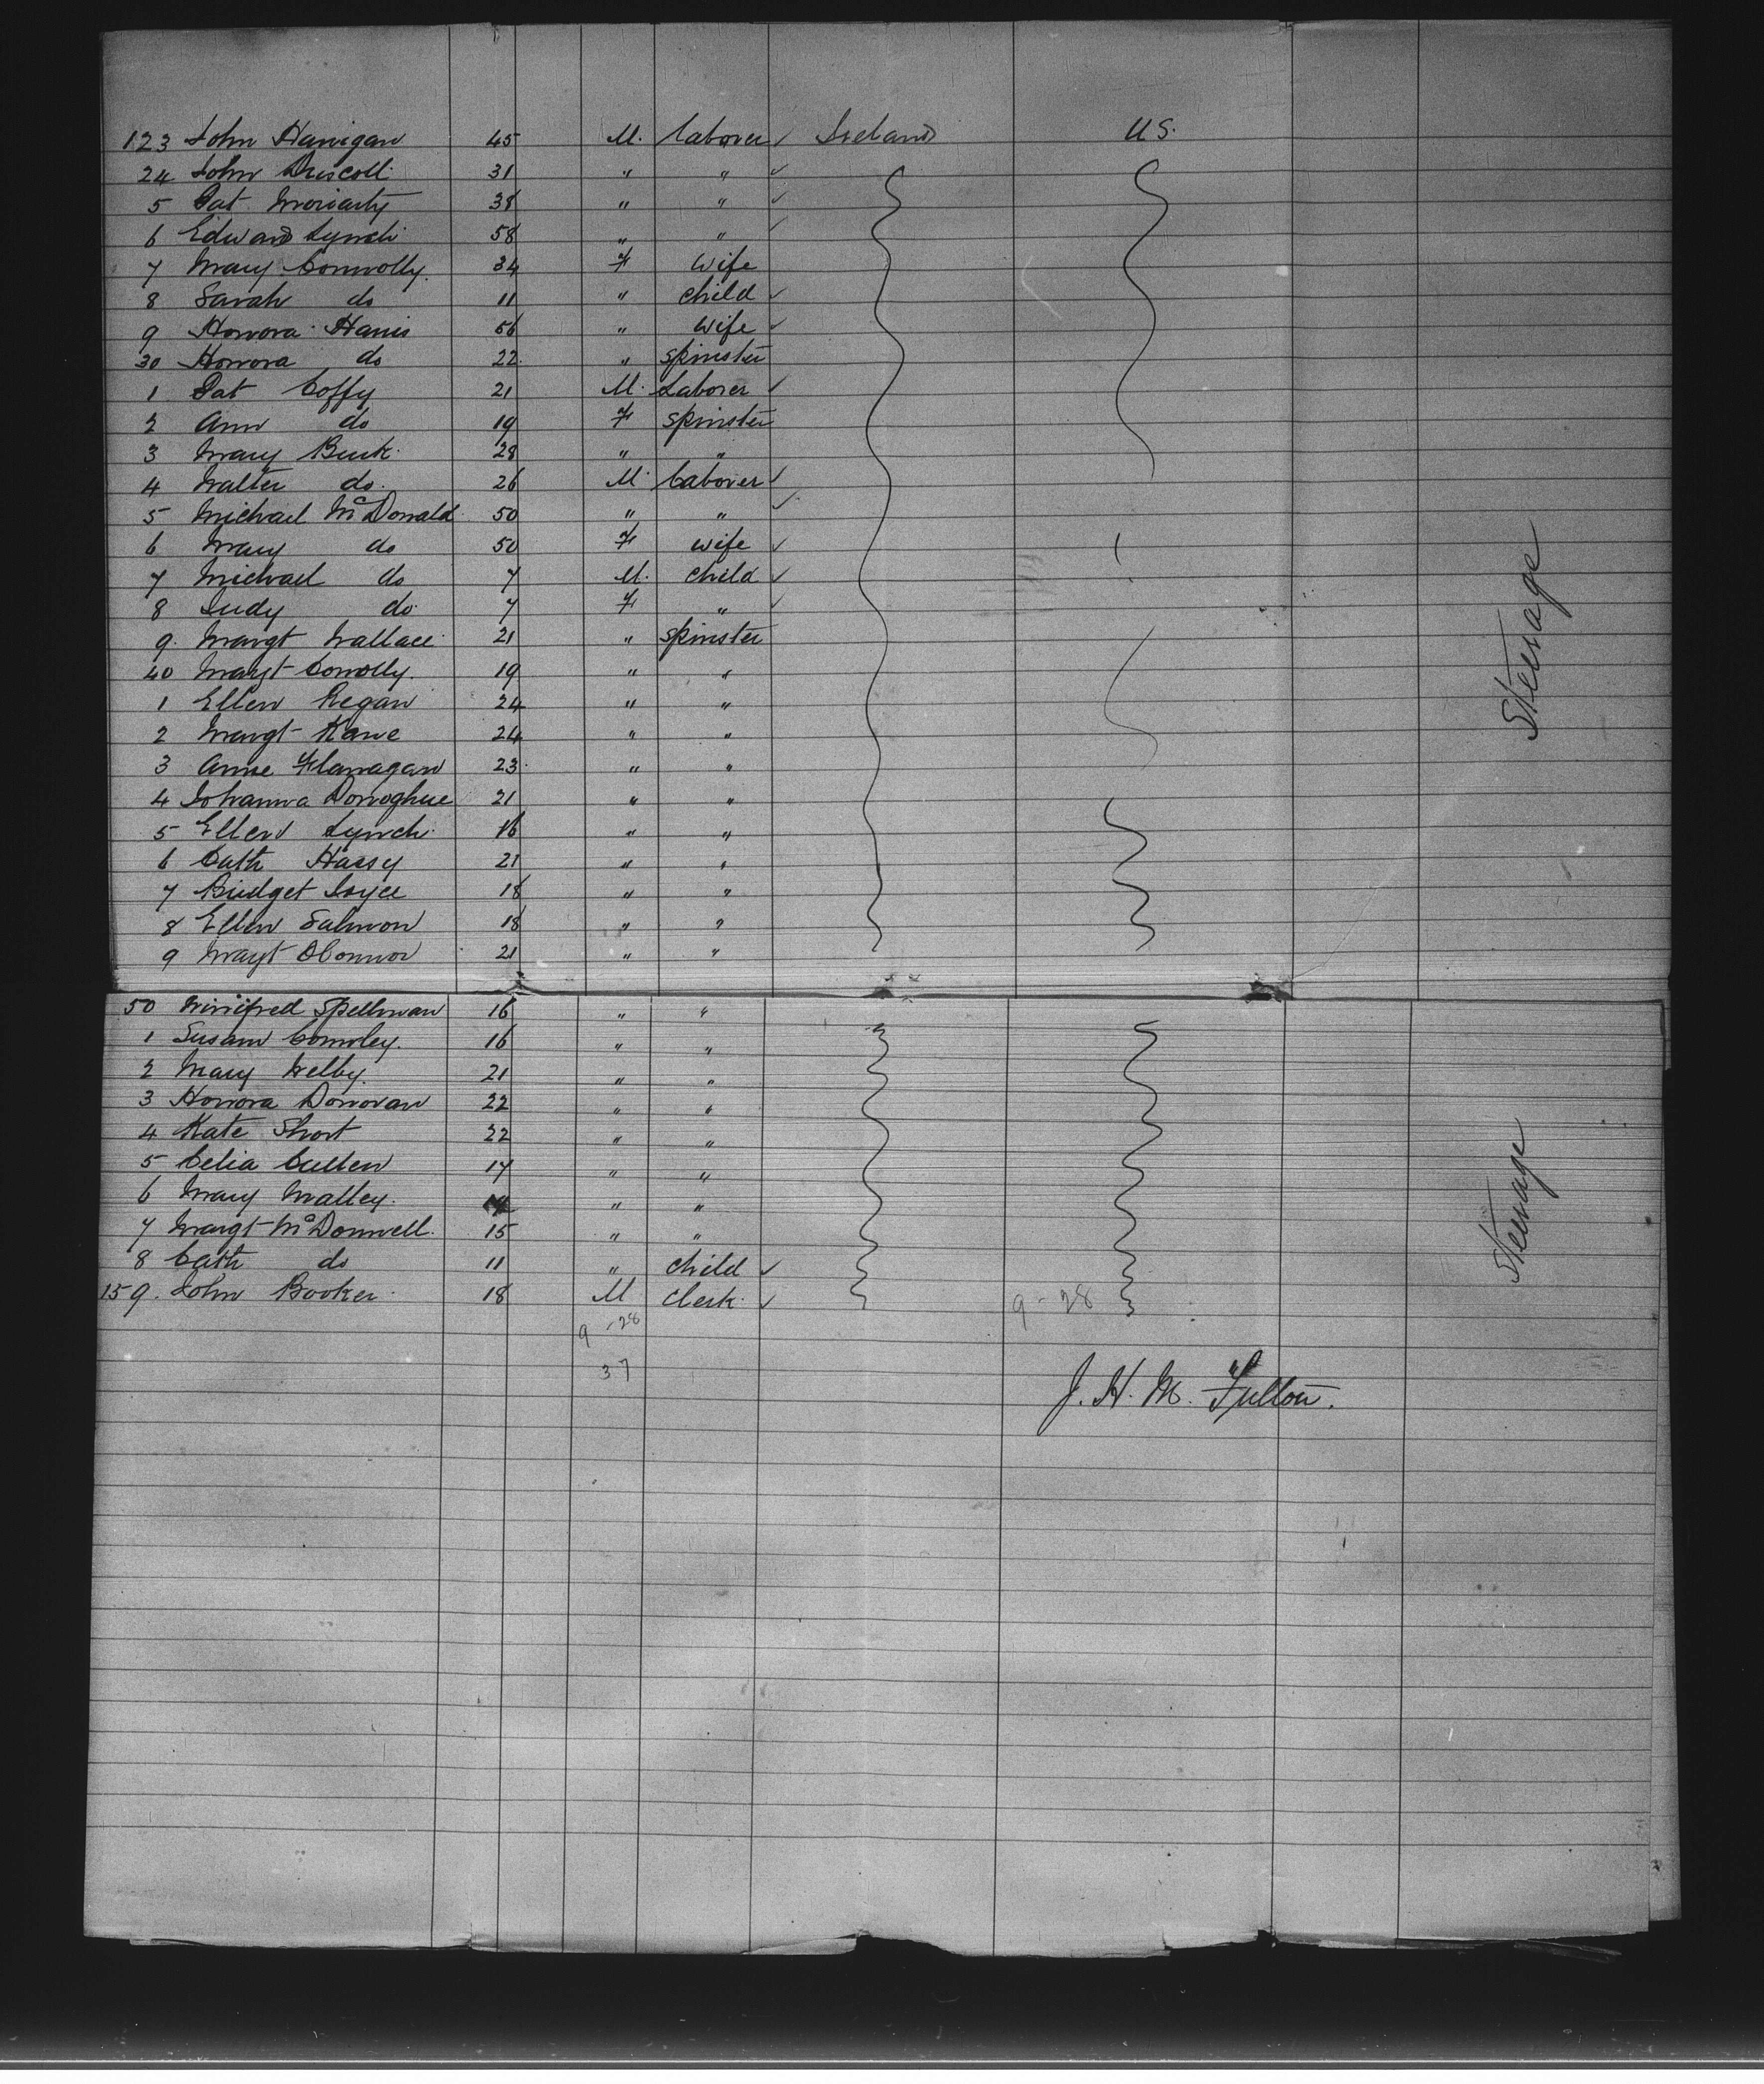 123 John Hanigan 45 M. Laborer ✓ Ireland U.S.
24 John Driscoll 31 " " ✓
5 Pat Moriarty 38 " " ✓
6 Edward Lynch 58 " " ✓
7 Mary Connolly. 34 F Wife
8 Sarah do 11 " child ✓
9 Honora Harris 56 " wife ✓
30 Honora do 22 " spinster
1 Pat Coffy 21 M. Laborer ✓
2 Ann do 19 F spinster
3 Mary Burk 28 " "
4 Walter do. 26 M. Laborer ✓
5 Michael McDonald 50 " " ✓
6 Mary do 50 F wife ✓
7 Michael do 7 M. child ✓
8 Judy do. 7 F " ✓
9. Margt Wallace 21 " spinster
40 Margt Conolly. 19 " "
1 Ellen Regan 24 " "
2 Margt Kane 24 " "
3 Anne Flanagan 23 " "
4 Johanna Donoghue 21 " "
5 Ellen Lynch 16 " "
6 Cath Hassy 21 " "
7 Bridget Joyce 18 " "
8 Ellen Salmon 18 " "
9 Margt OConnor 21 " "
Steerage
50 Winifred Spellman 16 " "
1 Susan Comley. 16 " "
2 Mary Welby. 21 " "
3 Honora Donovan 22 " "
4 Kate Short 22 " "
5 Celia Cullen 17 " "
6 Mary Malley. " "
7 Margt McDonnell. 15 " "
8 Cath do 11 " child ✓
159. John Booker 18 M Clerk. ✓ 9-28
Steerage
9-28
37
J. H. M. Fulton.